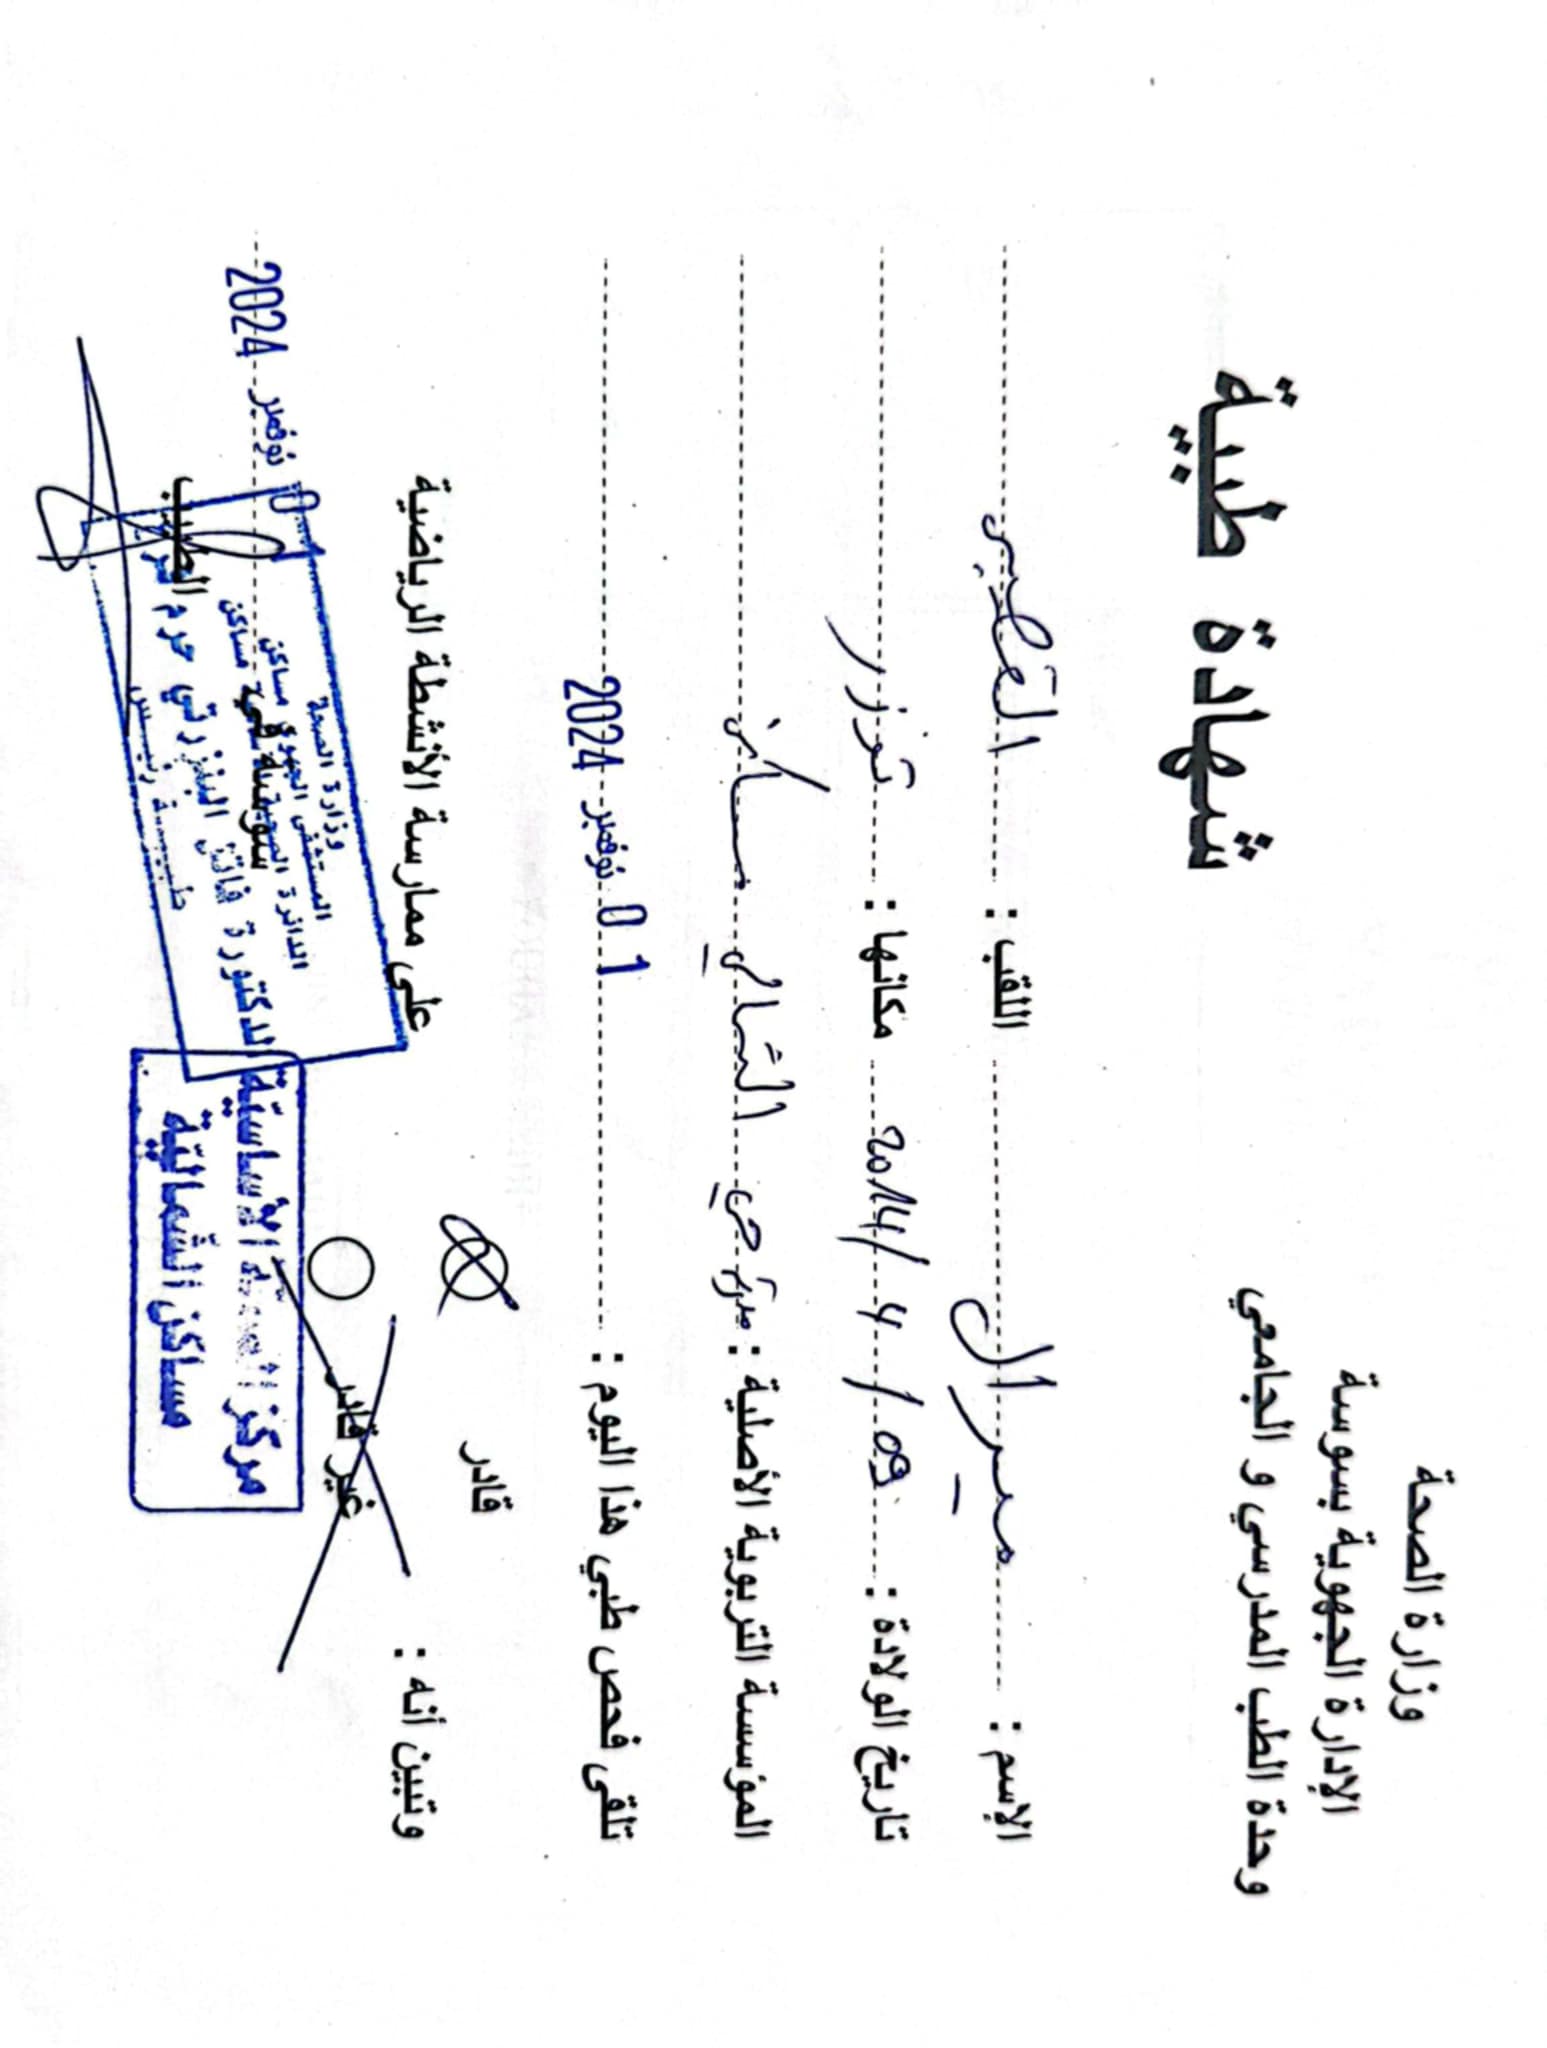 وزارة الصحة
الإدارة الجهوية بسوسة
وحدة الطب المدرسي و الجامعي
شهادة طبية
الإسم : ميرال اللقب :
تاريخ الولادة : 09 / 4 / 2014 مكانها : توزر
المؤسسة التربوية الأصلية : الشمالي مساكن
تلقى فحص طبي هذا اليوم : 0 1 نوفمبر 2024
وتبين أنه : قادر على ممارسة الأنشطة الرياضية
غير قادر
سوسة في 0 نوفمبر 2024
الطبيب
وزارة الصحة
المستشفى الجهوي مساكن
الدائرة الصحية مساكن
الدكتورة فاتن البنزرتي حرم
طبيبة رئيس
مركز الصحة الأساسيّة
مساكن الشماليّة